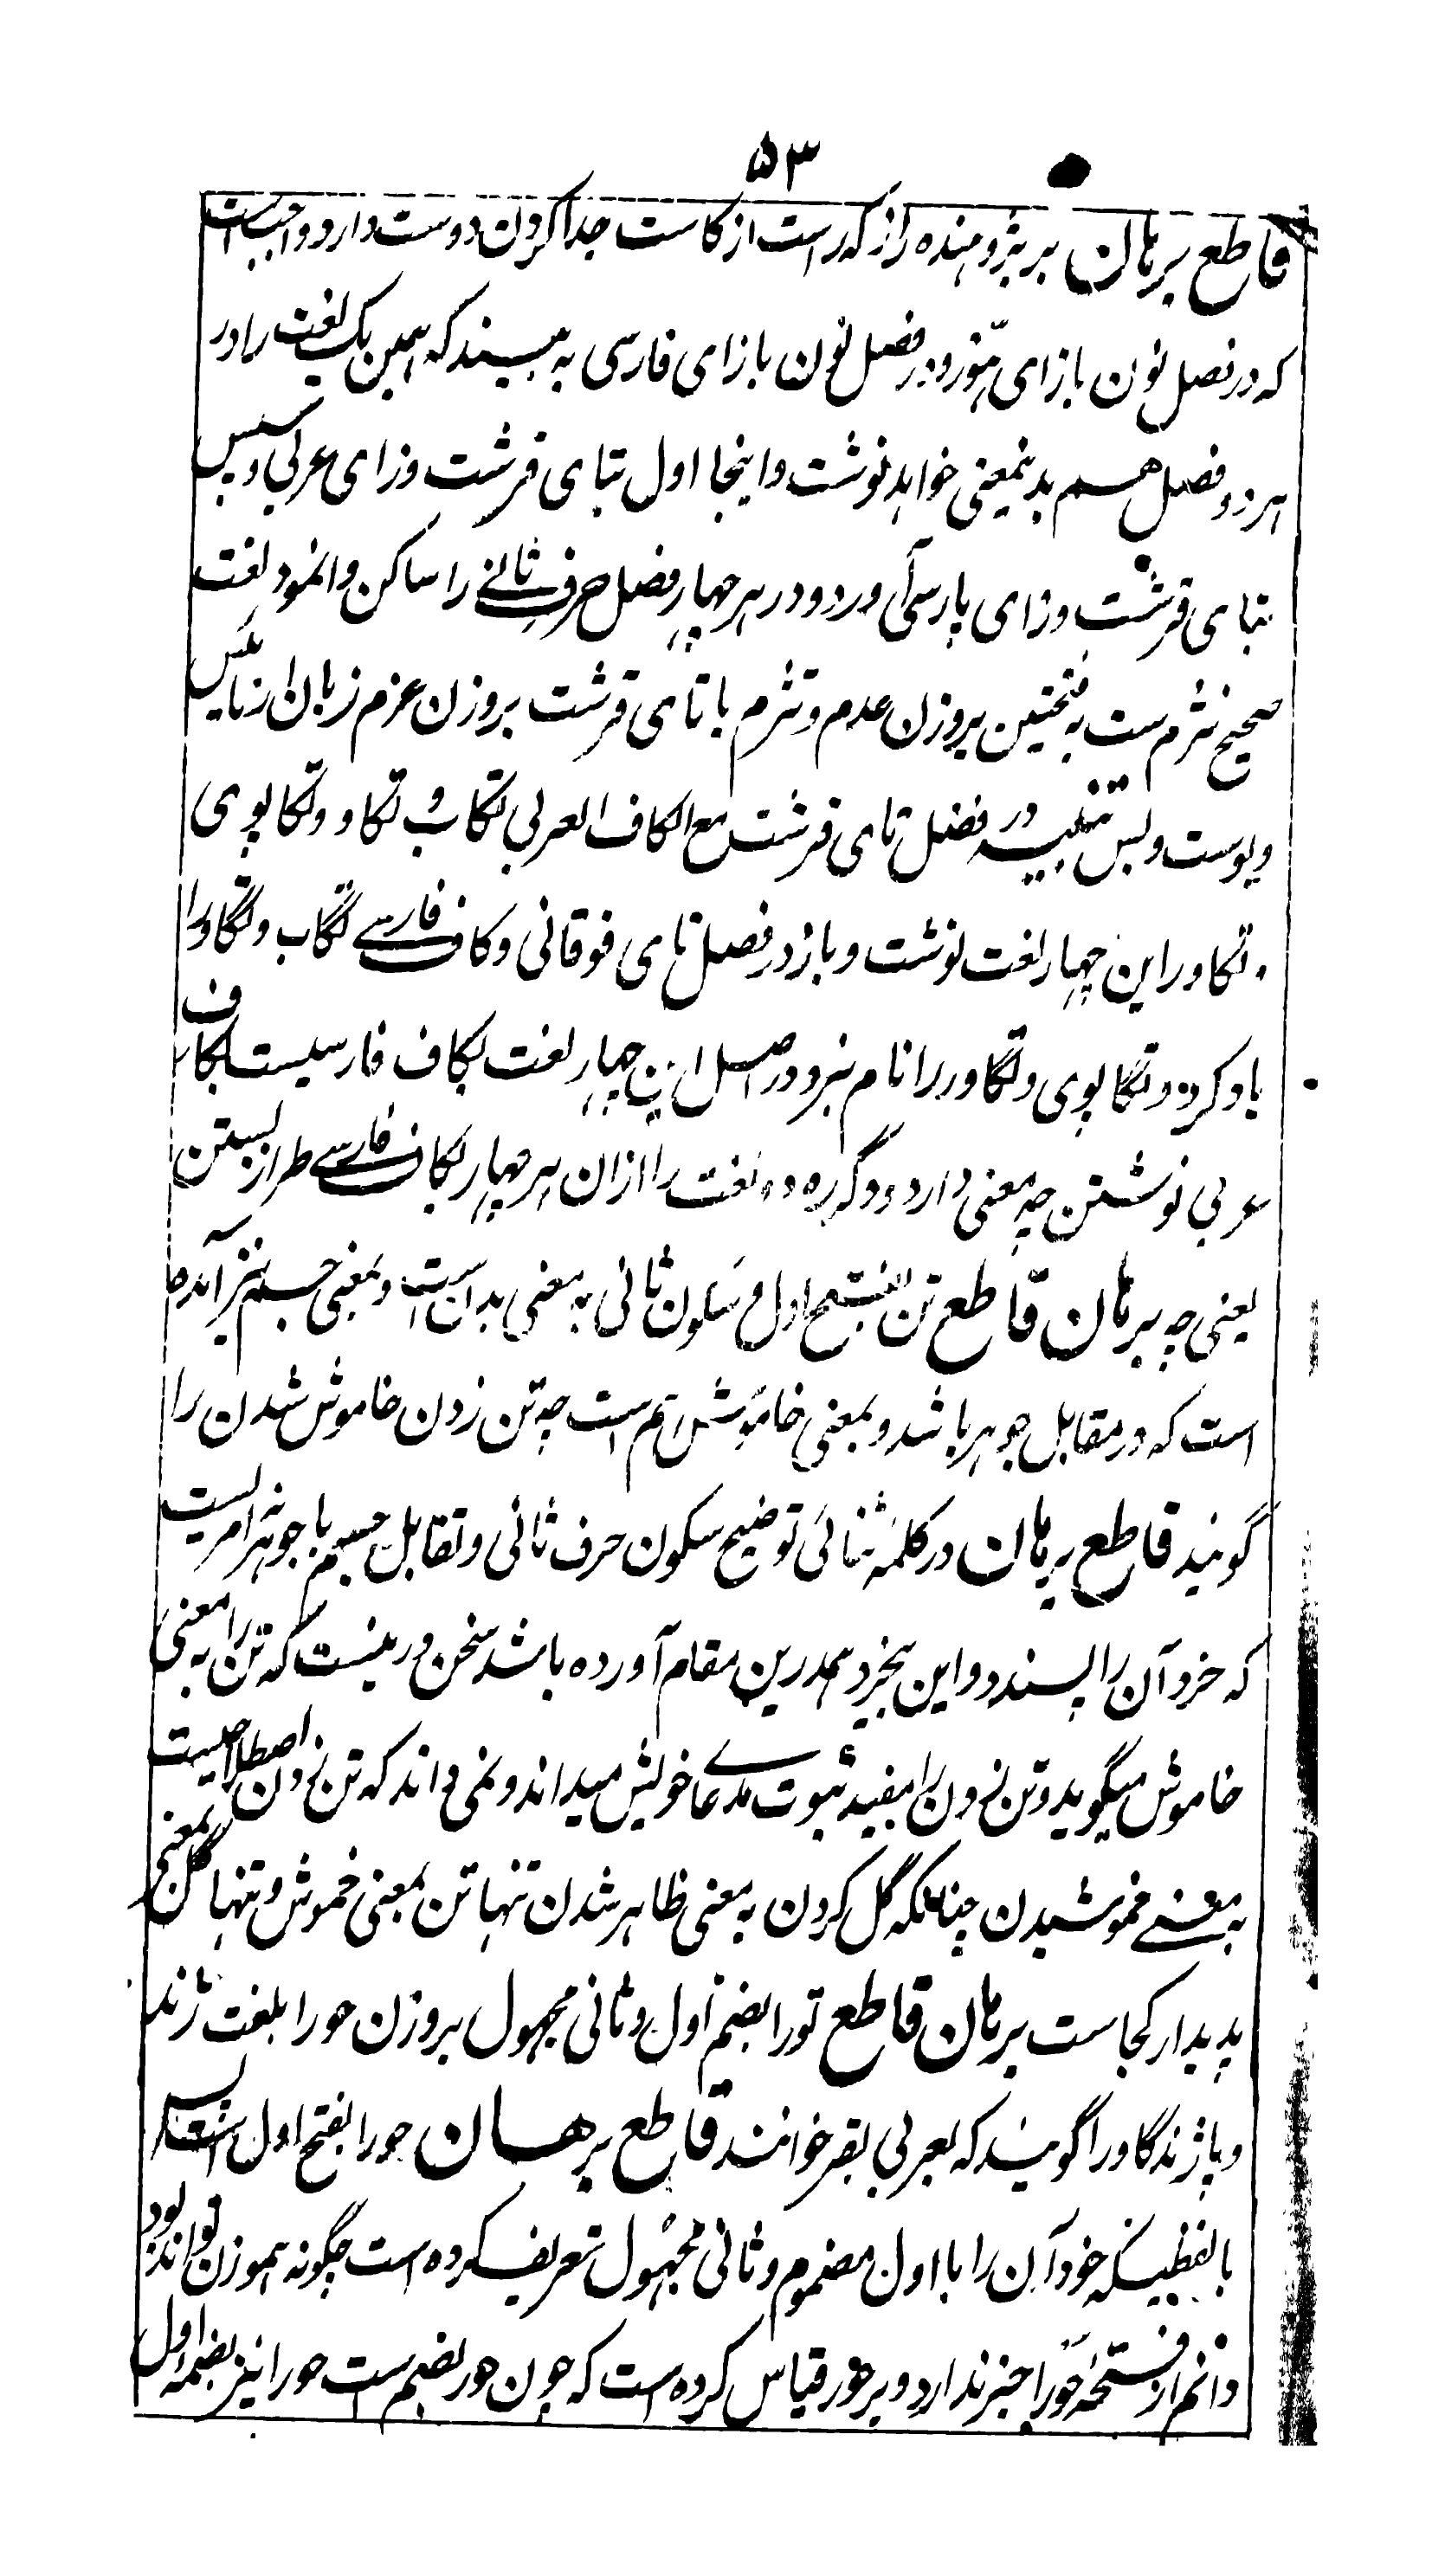 ۵۳
قاطع برهان بر پژوهنده راز که راست از کاست جدا کردن دوست دارد واجبست
که در فصل نون با زای هوّز و در فصل نون با زای فارسی به بیسند که همین یک لغت را در
هر دو فصل هم بدینمعنی خواهد نوشت و اینجا اول بتای قرشت و زای عربی و سپس
بتای قرشت و زای پارسی آورد و در هر چهار فصل حرف ثانے را ساکن وانمود لغت
صحیح نژم ست به فتحتین بروزن عدم و تژم با تای قرشت بروزن عزم زبان زنا یکس
ویوست و بس تنبیه در فصل تای قرشت مع الکاف العربی تکاب و تکاو و تکاپوی
و تکاور این چهار لغت نوشت و باز در فصل تای فوقانی و کاف فارسے تگاب و تگاو را
یاد کرد و تگاپوی و تگاور را نام نبرد در اصل این چهار لغت بکاف فارسیست بکاف
عربی نوشتن چه معنی دارد و دگر دو لغت را ازان هر چهار بکاف فارسے طراز بستن
یعنی چه برهان قاطع تن بفتح اول و سکون ثانی به معنی بدن است و بمعنی جسم نیز آمده
است که در مقابل جوهر باشد و بمعنی خاموش هم است چه تن زدن خاموش شدن را
گویند قاطع برهان در کلمهٔ ثنائی توضیح سکون حرف ثانی و تقابل جسم با جوهر نه امریست
که خرد آن را پسندد و این بیخرد همدرین مقام آورده باشد سخن درینست که تن را به معنی
خاموش میگوید و تن زدن را مفید ثبوت مدعاے خویش میداند و نمی داند که تن زدن اصطلاحیست
به معنے خموشیدن چنانکه گل کردن به معنی ظاهر شدن تنها تن بمعنی خموش و تنها گل بمعنی
پدیدار کجاست برهان قاطع تورا بضم اول و ثانی مجهول بروزن حورا بلغت ژند
و پاژند گاو را گویند که بعربی بقر خوانند قاطع برهان حورا بفتح اول است پس
با لفظیکه خود آن را با اول مضموم و ثانی مجهول تعریف کرده است چگونه هموزن تواند بود
دانم از فتحهٔ حورا خبر ندارد و بر حور قیاس کرده است که چون حور بضم است حورا نیز بضمهٔ اول